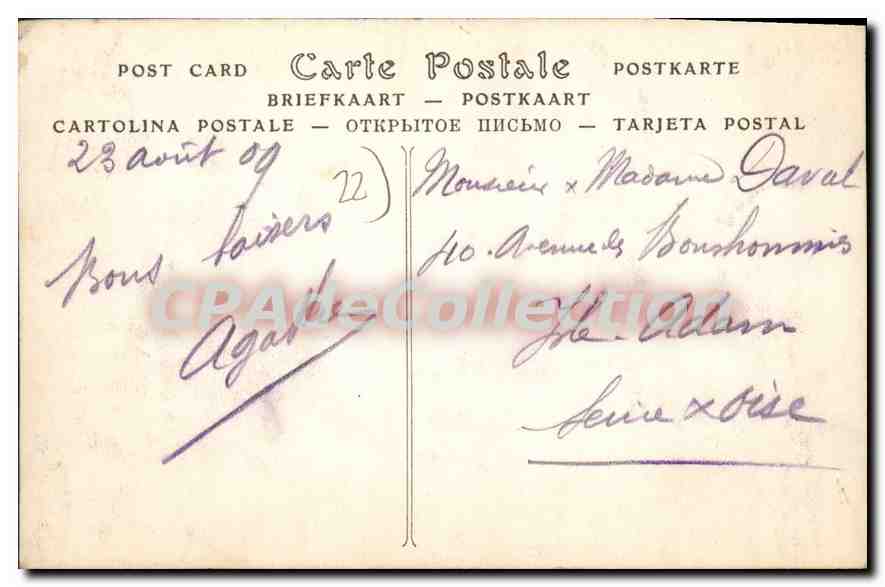 POST CARD Carte Postale POSTKARTE
BRIEFKAART — POSTKAART
CARTOLINA POSTALE — ОТКРЫТОЕ ПИСЬМО — TARJETA POSTAL
23 août 09
22)
Bons baisers
Agathe
Monsieur x Madame Daval
40. Avenue des Bonshommes
Isle-Adam
Seine x Oise
CPAdeCollection